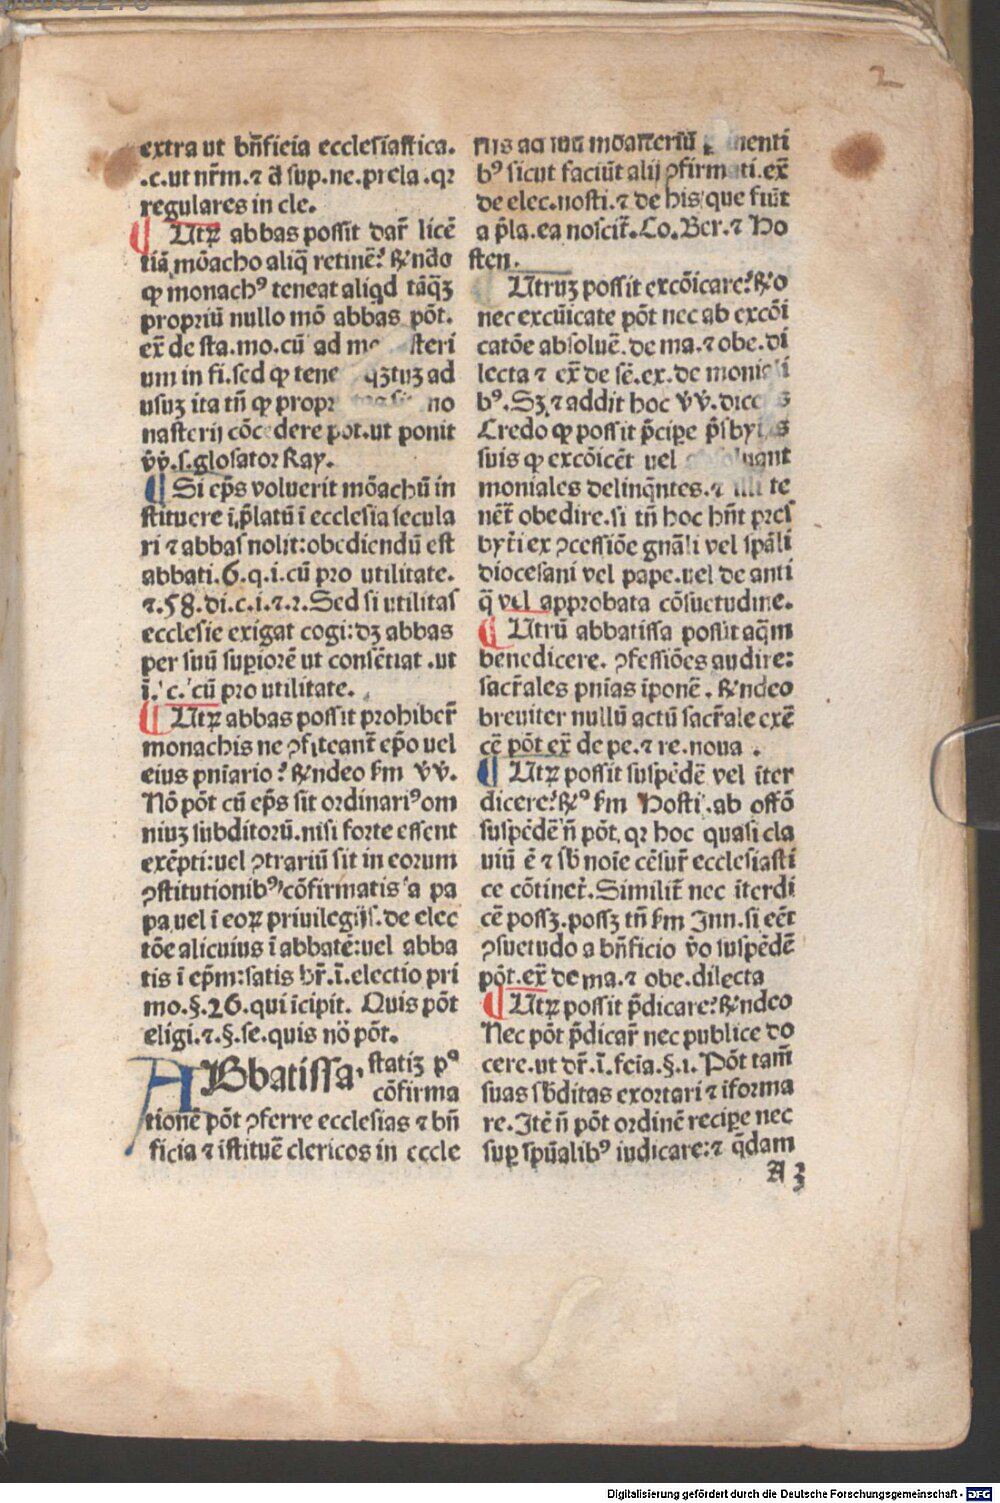 2
extra ut bn̄ficia ecclesiastica.
.c.ut nr̄m.⁊ ā sup.ne.prela.qꝛ
regulares in cle.
¶ Utꝝ abbas possit dar̄ licē
tiā mōacho aliq̄ retinē? Rn̄do
ꝙ monachꝰ teneat aliqd tāq̄ꝫ
propriū nullo mō abbas pōt.
ex̄ de sta.mo.cū ad mo steri
um in fi.sed ꝙ tene qꝫtuꝫ ad
usuꝫ ita tn̄ ꝙ propr no
nasterij cōcedere pot.ut ponit
vv̄.s.glosator Ray.
¶ Si ep̄s voluerit mōachū in
stituere ī p̄latū ī ecclesia secula
ri ⁊ abbas nolit:obediendū est
abbati.6.q.i.cū pro utilitate.
⁊.58.di.c.i.⁊.2.Sed si utilitas
ecclesie exigat cogi:dꝫ abbas
per suū supiorē ut consētiat.ut
ī.c.cū pro utilitate.
¶ Utꝝ abbas possit prohiber̄
monachis ne ꝯfiteant̄ ep̄o uel
eius pn̄iario? Rn̄deo ẜm vv̄.
Nō pōt cū ep̄s sit ordinariꝰ om
niuꝫ subditorū.nisi forte essent
exēpti:uel ꝯtrariū sit in eorum
ꝯstitutionibꝰ cōfirmatis a pa
pa uel ī eoꝝ priuilegijs.de elec
tōe alicuius ī abbatē:uel abba
tis ī ep̄m:satis hr̄.ī.electio pri
mo.§.26.qui īcipit. Quis pōt
eligi.⁊.§.se.quis nō pōt.
ABbatissa statiꝫ pꝰ
cōfirma
tionē pōt ꝯferre ecclesias ⁊ bn̄
ficia ⁊ īstituē clericos in eccle
mōasteriū nenti
bꝰ sicut faciūt alij ꝯfirmati.ex̄
de elec.nosti.⁊ de his que fiūt
a p̄la.ea noscit̄.Co.Ber.⁊ Ho
sten.
Utruꝫ possit excōicare? R̄o
nec excūicate pōt nec ab excōi
catōe absoluē.de ma.⁊ obe.di
lecta ⁊ ex̄ de sē.ex.de monia
bꝰ.Sꝫ ⁊ addit hoc vv̄.dice s
Credo ꝙ possit p̄cipe p̄sbyt s
suis ꝙ excōicēt uel absoluant
moniales delinq̄ntes.⁊ illi te
nēt̄ obedire.si tn̄ hoc hn̄t pres
byt̄i ex ꝯcessiōe gn̄ali vel sp̄ali
diocesani vel pape.uel de anti
q̄ vel approbata cōsuetudine.
¶ Utrū abbatissa possit aq̄m
benedicere. ꝯfessiōes audire:
sacr̄ales pn̄ias īponē. Rn̄deo
breuiter nullū actū sacr̄ale exē
cē pōt ex̄ de pe.⁊ re.noua .
¶ Utꝝ possit suspēdē vel īter
dicere? Rꝰ ẜm Hosti.ab offō
suspēdē n̄ pōt.qꝛ hoc quasi cla
uiū ē ⁊ sb̄ noīe cēsur̄ ecclesiasti
ce cōtinet̄.Similit̄ nec īterdi
cē possꝫ.possꝫ tn̄ ẜm Inn.si eēt
ꝯsuetudo a bn̄ficio v̄o suspēdē
pōt.ex̄ de ma.⁊ obe.dilecta
¶ Utꝝ possit p̄dicare? Rn̄deo
Nec pōt p̄dicar̄ nec publice do
cere.ut dr̄.ī.feīa.§.1.Pōt tam̄
suas sb̄ditas exortari ⁊ īforma
re.Itē n̄ pōt ordinē recipe nec
sup sp̄ualibꝰ iudicare:⁊ q̄dam
A 3
Digitalisierung gefördert durch die Deutsche Forschungsgemeinschaft - DFG